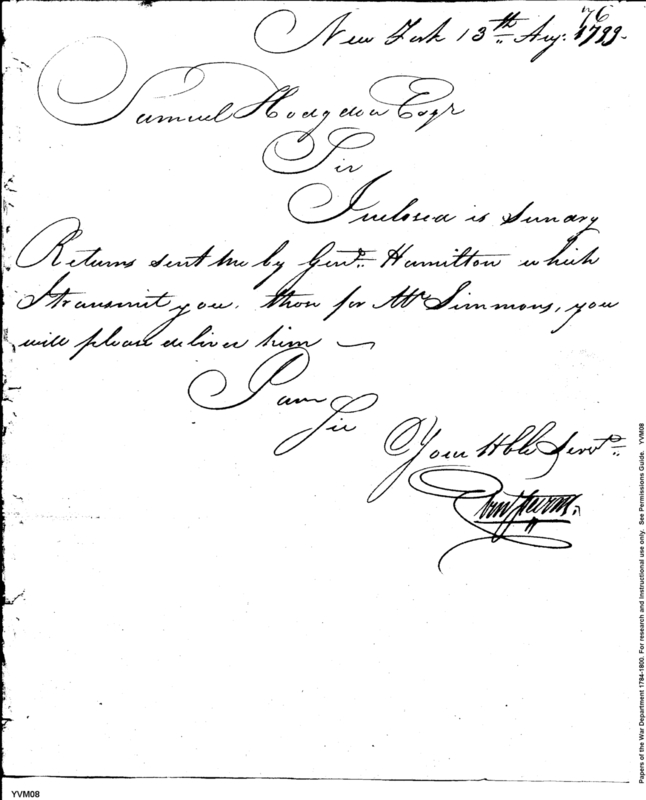 76
New York 13th Aug. 1799.
Samuel Hodgdon Esqr
Sir
Inclosed is Sundry
Returns sent me by Genl. Hamilton which
I transmit you. those for Mr Simmons, you
will please deliver him
I am
Sir
Your Hble Servt.
Papers of the War Department 1784-1800. For research and instructional use only. See Permissions Guide. YVM08
YVM08